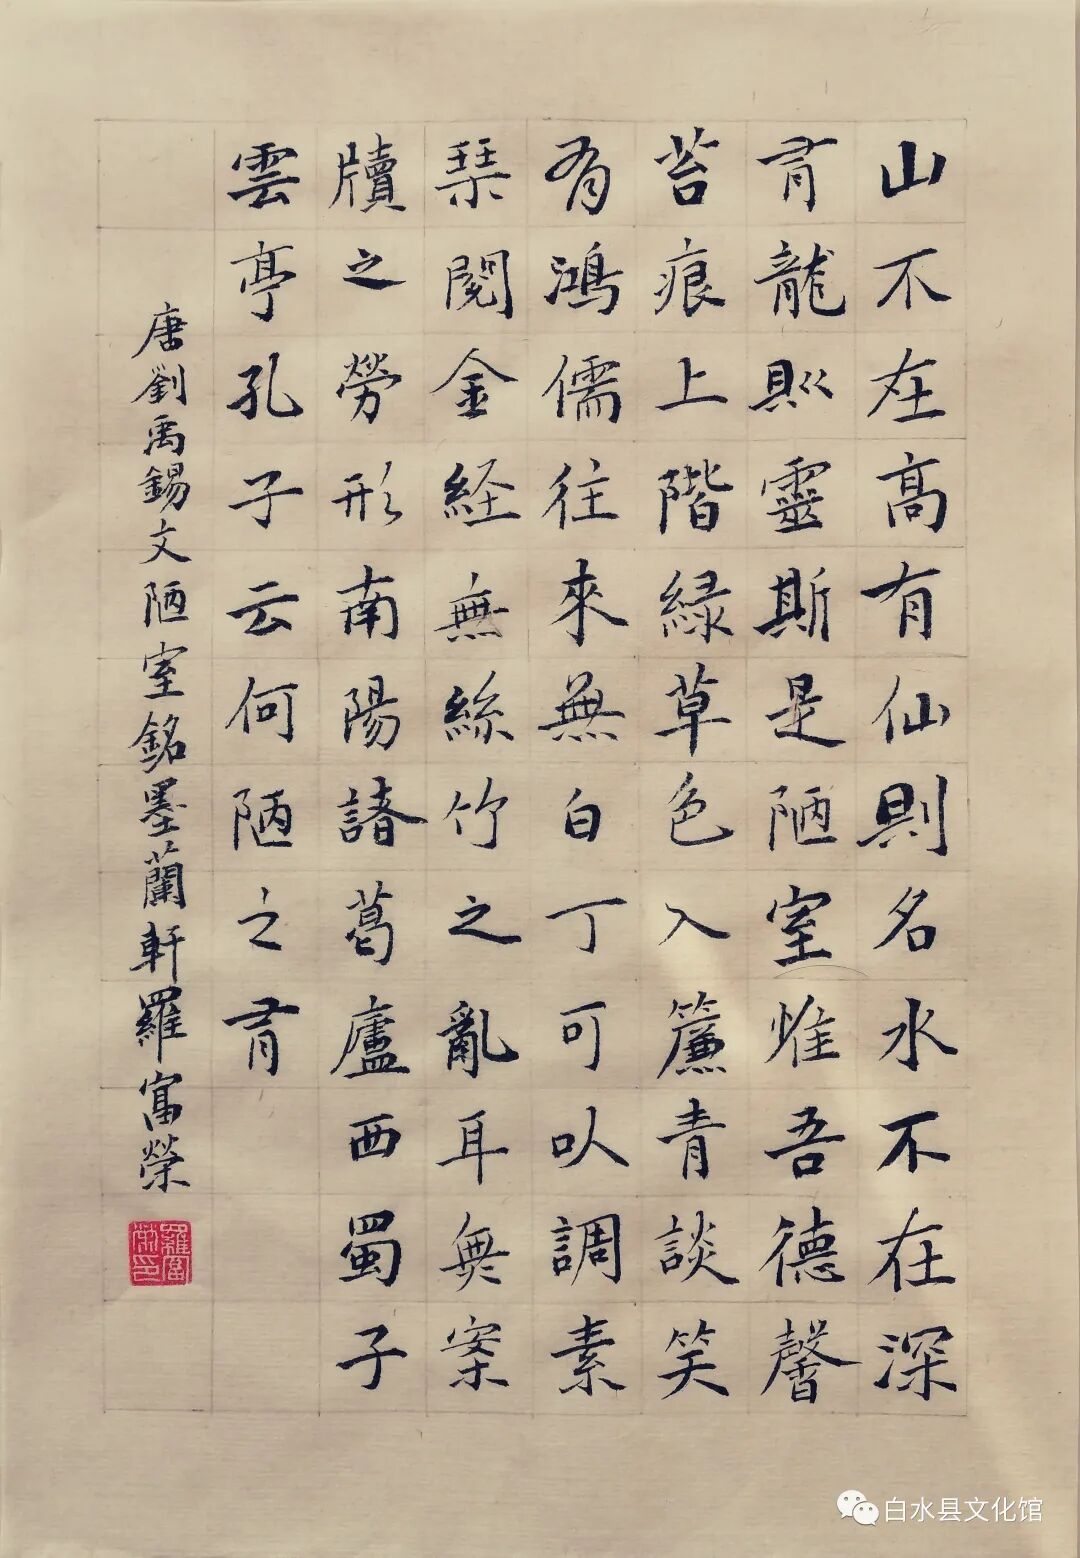 山不在高有仙則名水不在深
有龍則靈斯是陋室惟吾德馨
苔痕上階緑草色入簾青談笑
有鴻儒往來無白丁可以調素
琹閲金経無絲竹之亂耳無案
牘之勞形南陽諸葛廬西蜀子
雲亭孔子云何陋之有
唐劉禹錫文陋室銘墨蘭軒羅富榮
羅富榮印
白水县文化馆